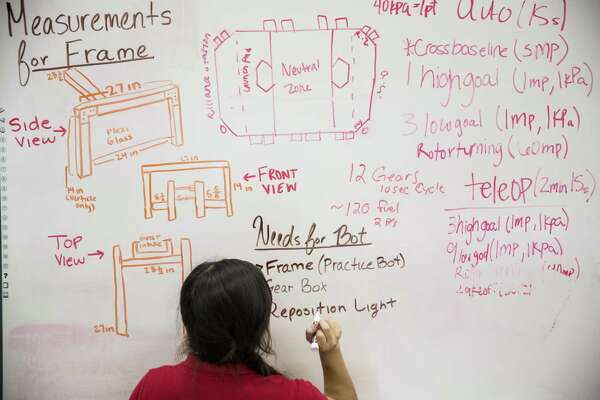 Measurements
for Frame
27in
Side
View
PLEXI
Glass
24in
14in
(verticle
only)
FRONT
VIEW
14in
Top
View
27in
Alliance station
Launch Pad
Neutral
Zone
40kPa=1pt
Auto (15s)
*Crossbaseline (5MP)
1 high goal (1mp, 1kPa)
3 low goal (1mp, 1kPa)
Rotor turning (60mp)
12 Gears
10sec Cycle
~120 fuel
teleop (2min 15s)
3 high goal (1mp, 1kPa)
9 low goal (1mp, 1kPa)
Needs for Bot
Frame (Practice Bot)
Gear Box
Reposition Light